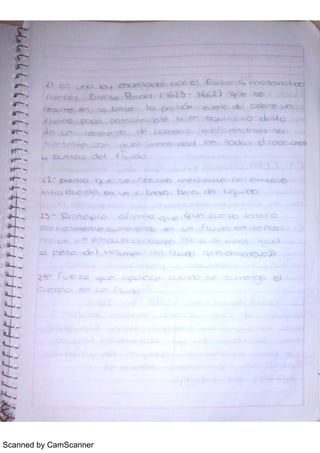 21 es una ley enunciada por el fisico y matematico
francés Blaise Pascal (1623-1662) que se
resume en la frase: la presión sobre un
fluido poco compresible en equilibrio dentro
de un recipiente de paredes indeformables se
transmite con igual intensidad en todas direcciones
y puntos del fluido
22- prensa que se acciona mediante un embolo
introducido en un tubo lleno de liquido
23- Principio afirma que «un cuerpo total o
parcialmente sumergido en un fluido en reposo
un empuje igual
al peso del volumen del fluido que desaloja»
24- fuerza que aparece cuando se sumerge el
cuerpo en un fluido
Scanned by CamScanner